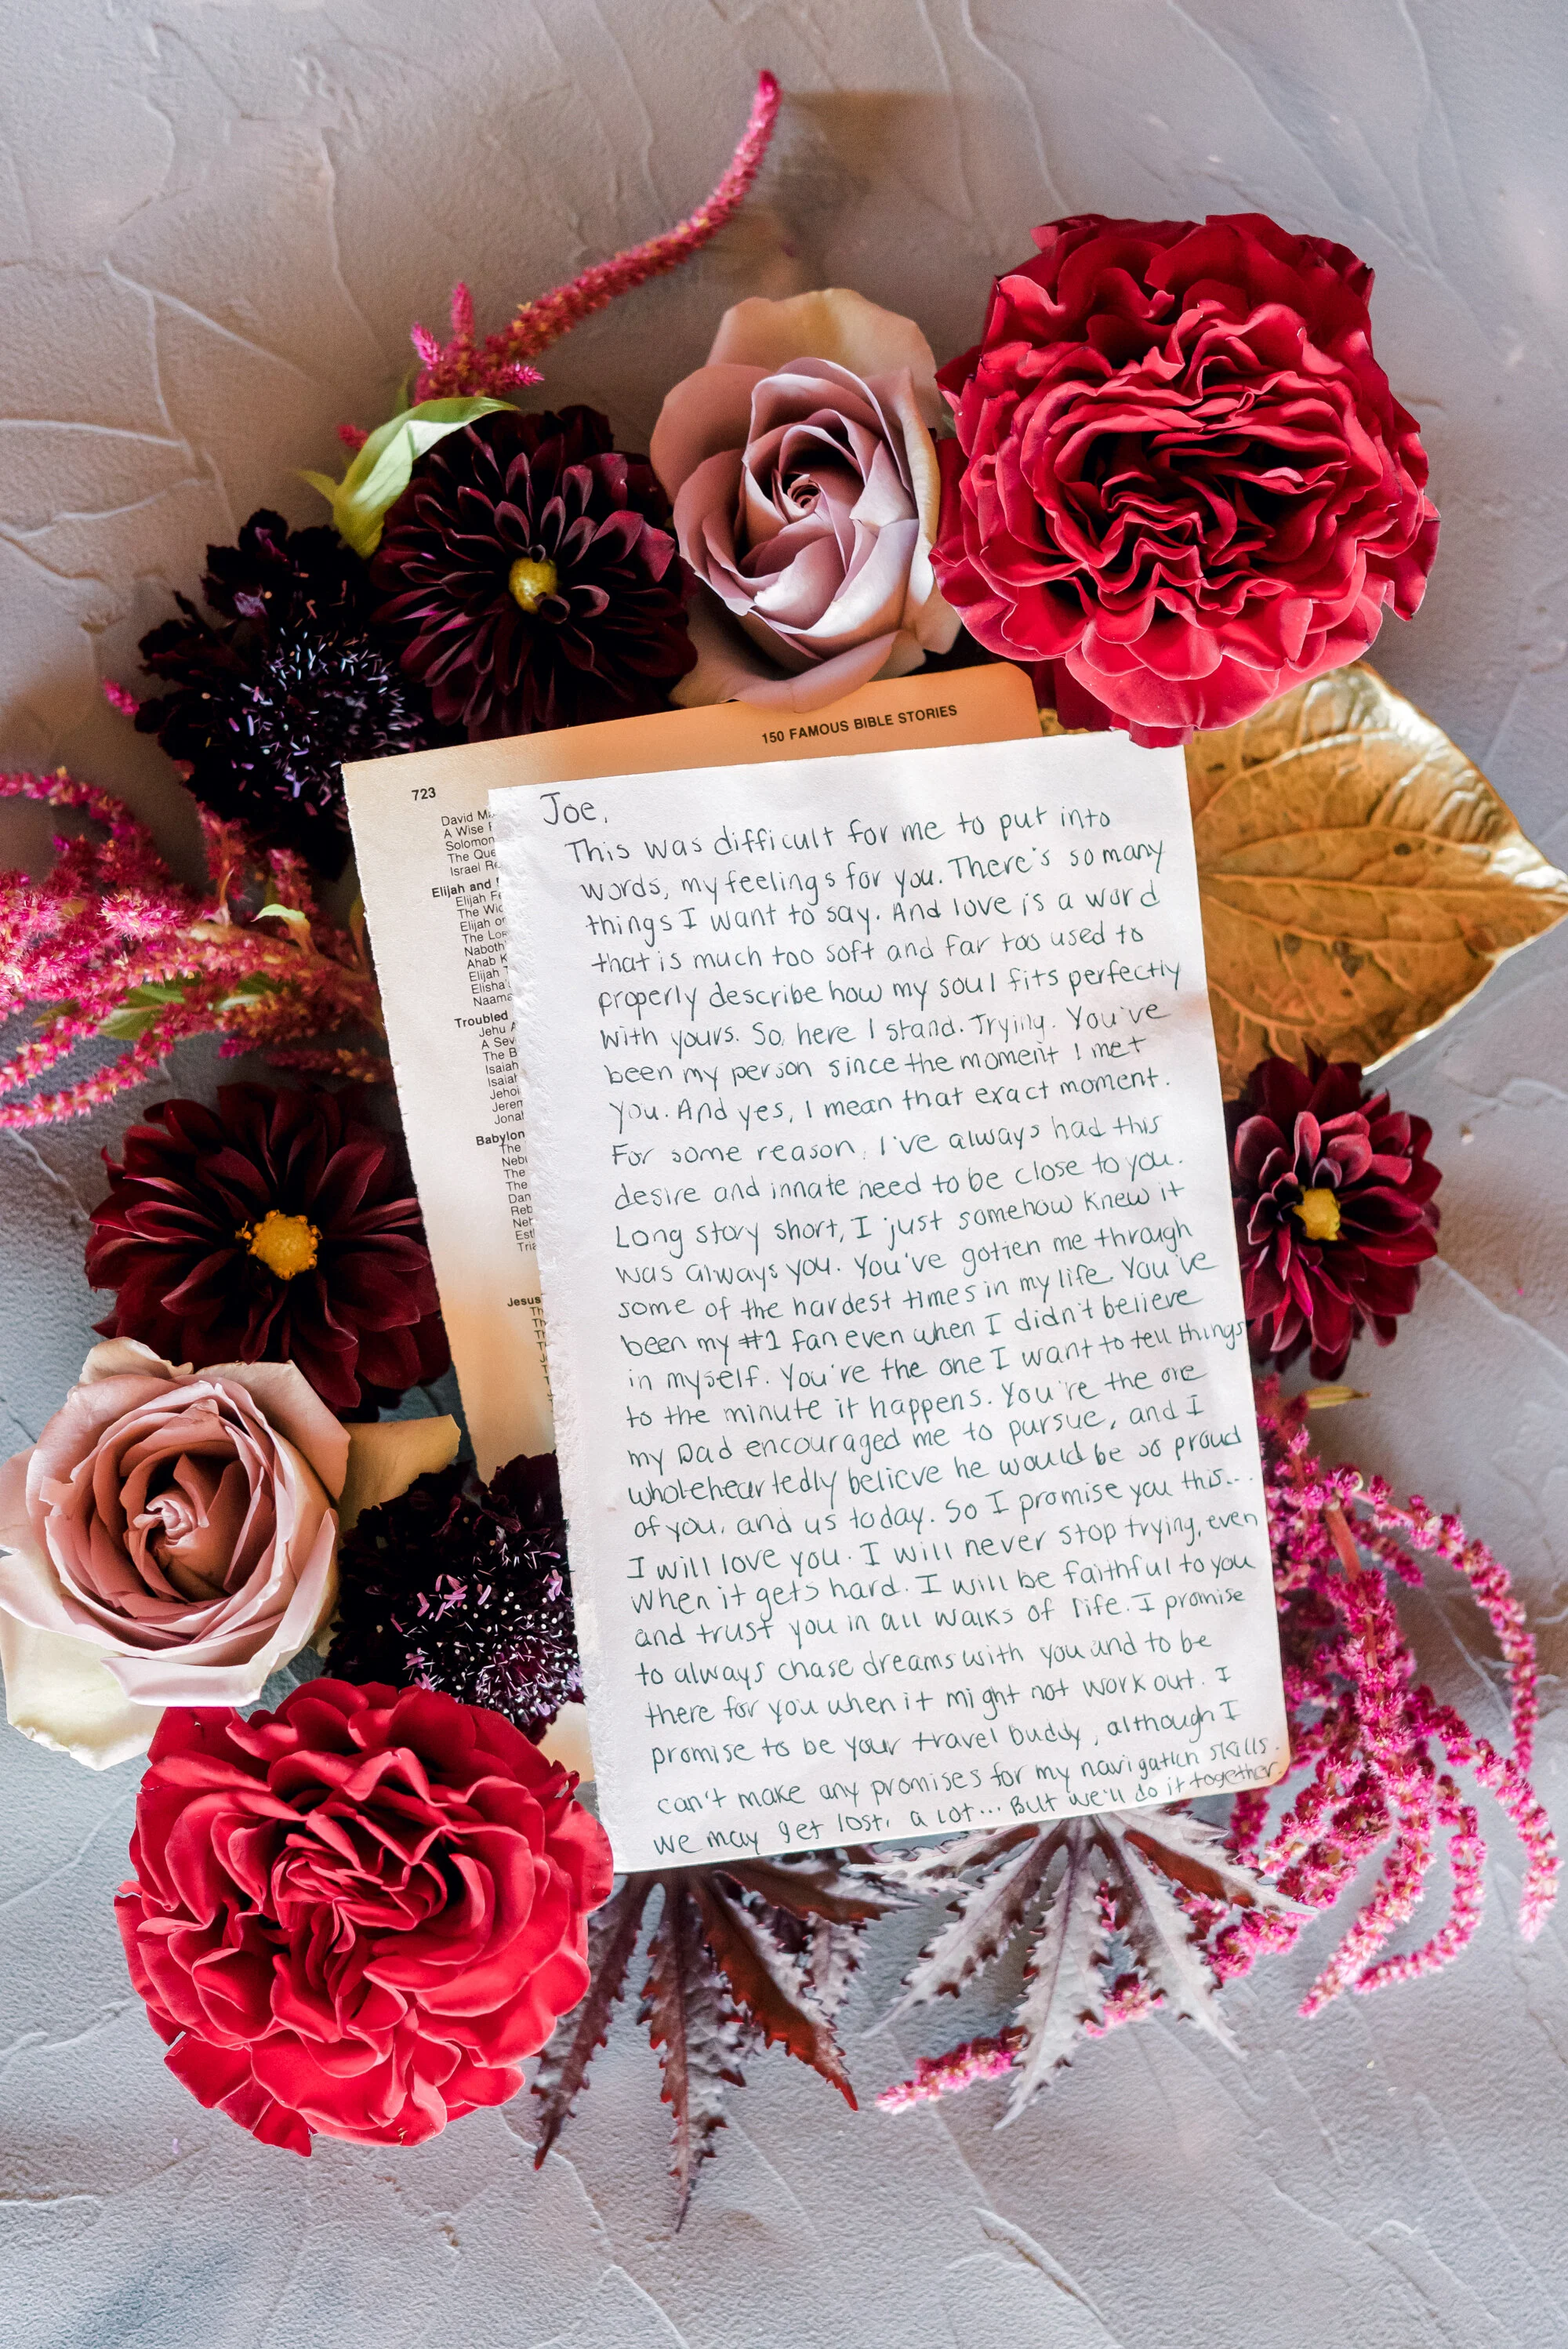 150 FAMOUS BIBLE STORIES
723
David M
A Wise
Solomon
The Que
Israel Re
Elijah and
Elijah F
The Wic
Elijah or
The Lor
Naboth
Ahab K
Elijah
Elisha'
Naama
Troubled
Jehu
A Sev
The B
Isaiah
Isaiah
Jehoi
Jerem
Jona
Babylon
The
Neb
The
The
Dan
Reb
Neh
Est
Tria
Jesus
Joe,
This was difficult for me to put into
words, my feelings for you. There's so many
things I want to say. And love is a word
that is much too soft and far too used to
properly describe how my soul fits perfectly
with yours. So, here I stand. Trying. You've
been my person since the moment I met
you. And yes, I mean that exact moment.
For some reason, I've always had this
desire and innate need to be close to you.
Long story short, I just somehow knew it
was always you. You've gotten me through
some of the hardest times in my life. You've
been my #1 fan even when I didn't believe
in myself. You're the one I want to tell things
to the minute it happens. You're the one
my Dad encouraged me to pursue, and I
wholeheartedly believe he would be so proud
of you, and us today. So I promise you this...
I will love you. I will never stop trying, even
when it gets hard. I will be faithful to you
and trust you in all walks of life. I promise
to always chase dreams with you and to be
there for you when it might not work out. I
promise to be your travel buddy, although I
can't make any promises for my navigation skills.
We may get lost, a lot... But we'll do it together.